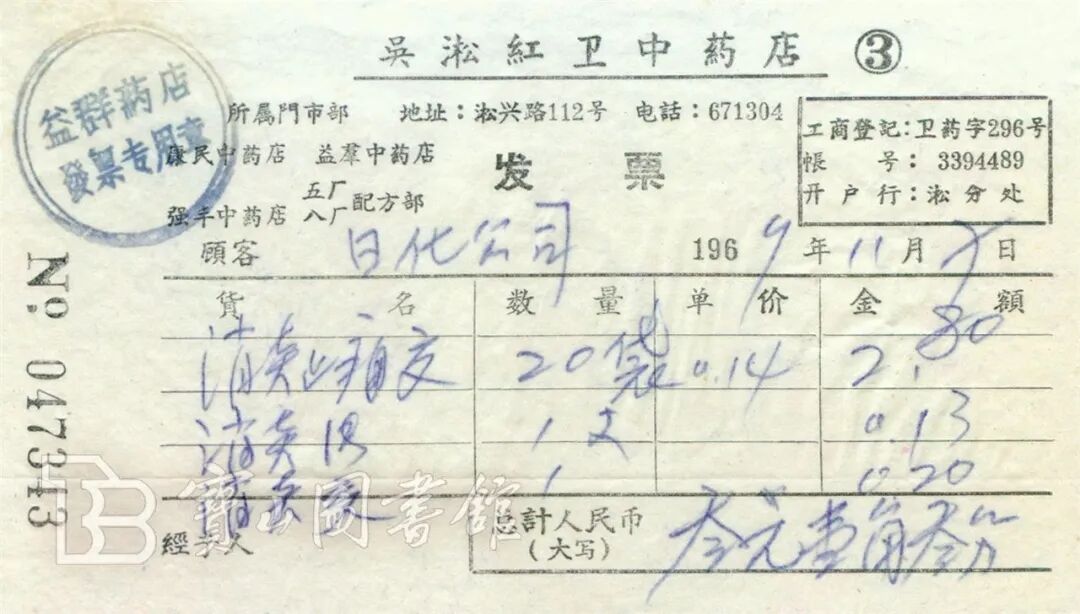 吳淞紅卫中药店 ③
益群药店
發票专用章
所属門市部 地址：淞兴路112号 电話：671304
康民中药店 益羣中药店
五厂
八厂 配方部
强丰中药店
发票
工商登記：卫药字296号
帳号：3394489
开户行：淞分处
顧客 日化公司 1969年11月 日
貨名 数量 单价 金額
消炎止 20袋 0.14 2.80
消炎 1支 0.13
消炎 1 0.20
总計人民币
（大写） 叁元壹角叁分
經手人
№ 047343
寶山圖書館